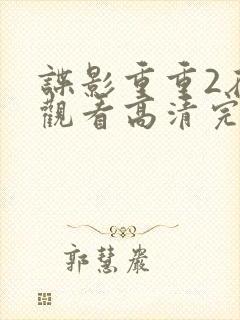 諜影重重2在
觀看高清完
郭慧嚴